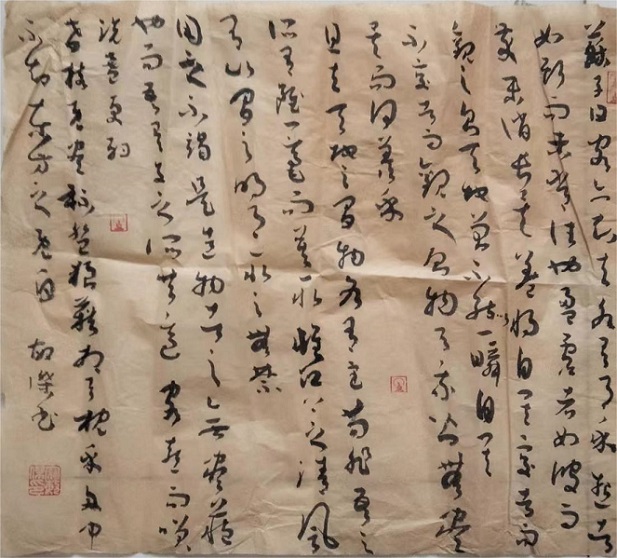 蘇子曰客亦知夫水與月乎逝者
如斯而未嘗往也盈虛者如彼而
卒莫消長也蓋將自其變者而
觀之則天地曾不能一瞬自其
不變者而觀之則物與我皆無盡
而何羨乎
且夫天地之間物各有主苟非吾之
所有雖一毫而莫取惟江上之清風
與山間之明月取之無禁
用之不竭是造物者之無盡藏
也而吾與子之所共適客喜而笑
洗盞更酌
肴核既盡杯盤狼藉相與枕乎舟中
不知東方之既白 書